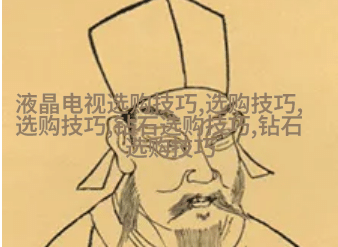 液晶电视选购技巧,选购技巧,
选购技巧,钻石选购技巧,钻石
选购技巧